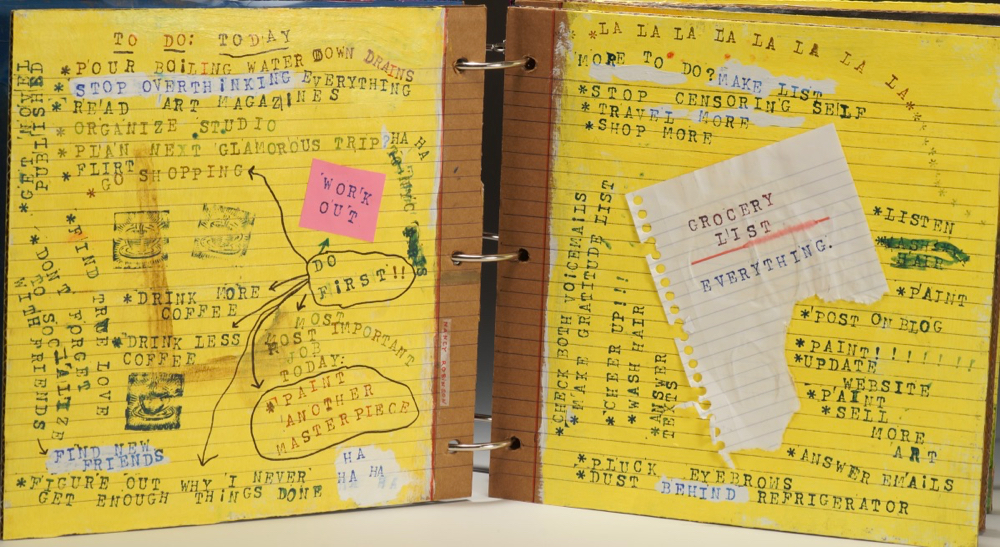 TO DO: TODAY
*POUR BOILING WATER DOWN DRAINS
*STOP OVERTHINKING EVERYTHING
*READ ART MAGAZINES
*ORGANIZE STUDIO
*PLAN NEXT GLAMOROUS TRIP?HA HA
*FLIRT
*GO SHOPPING
*GET NOVEL
PUBLISHED
WORK
OUT
DO
FIRST!!
*FIND
TRUE LOVE
*DON'T FORGET
TO SOCIALIZE
WITH FRIENDS
*DRINK MORE
COFFEE
*DRINK LESS
COFFEE
MOST
MOST IMPORTANT
JOB
TODAY:
*PAINT
ANOTHER
MASTERPIECE
FIND NEW
FRIENDS
*FIGURE OUT WHY I NEVER
GET ENOUGH THINGS DONE
HA
HA HA
HA
*LA LA LA LA LA LA LA LA LA*
MORE TO DO? MAKE LIST
*STOP CENSORING SELF
*TRAVEL MORE
*SHOP MORE
GROCERY
LIST
EVERYTHING.
*CHECK BOTH VOICEMAILS
*MAKE GRATITUDE LIST
*CHEER UP!!!!
*WASH HAIR
*ANSWER
TEXTS
*LISTEN
*WASH
HAIR
*PAINT
*POST ON BLOG
*PAINT!!!!!!!!
*UPDATE
WEBSITE
*PAINT
*SELL
MORE
ART
*ANSWER EMAILS
*PLUCK EYEBROWS
*DUST BEHIND REFRIGERATOR